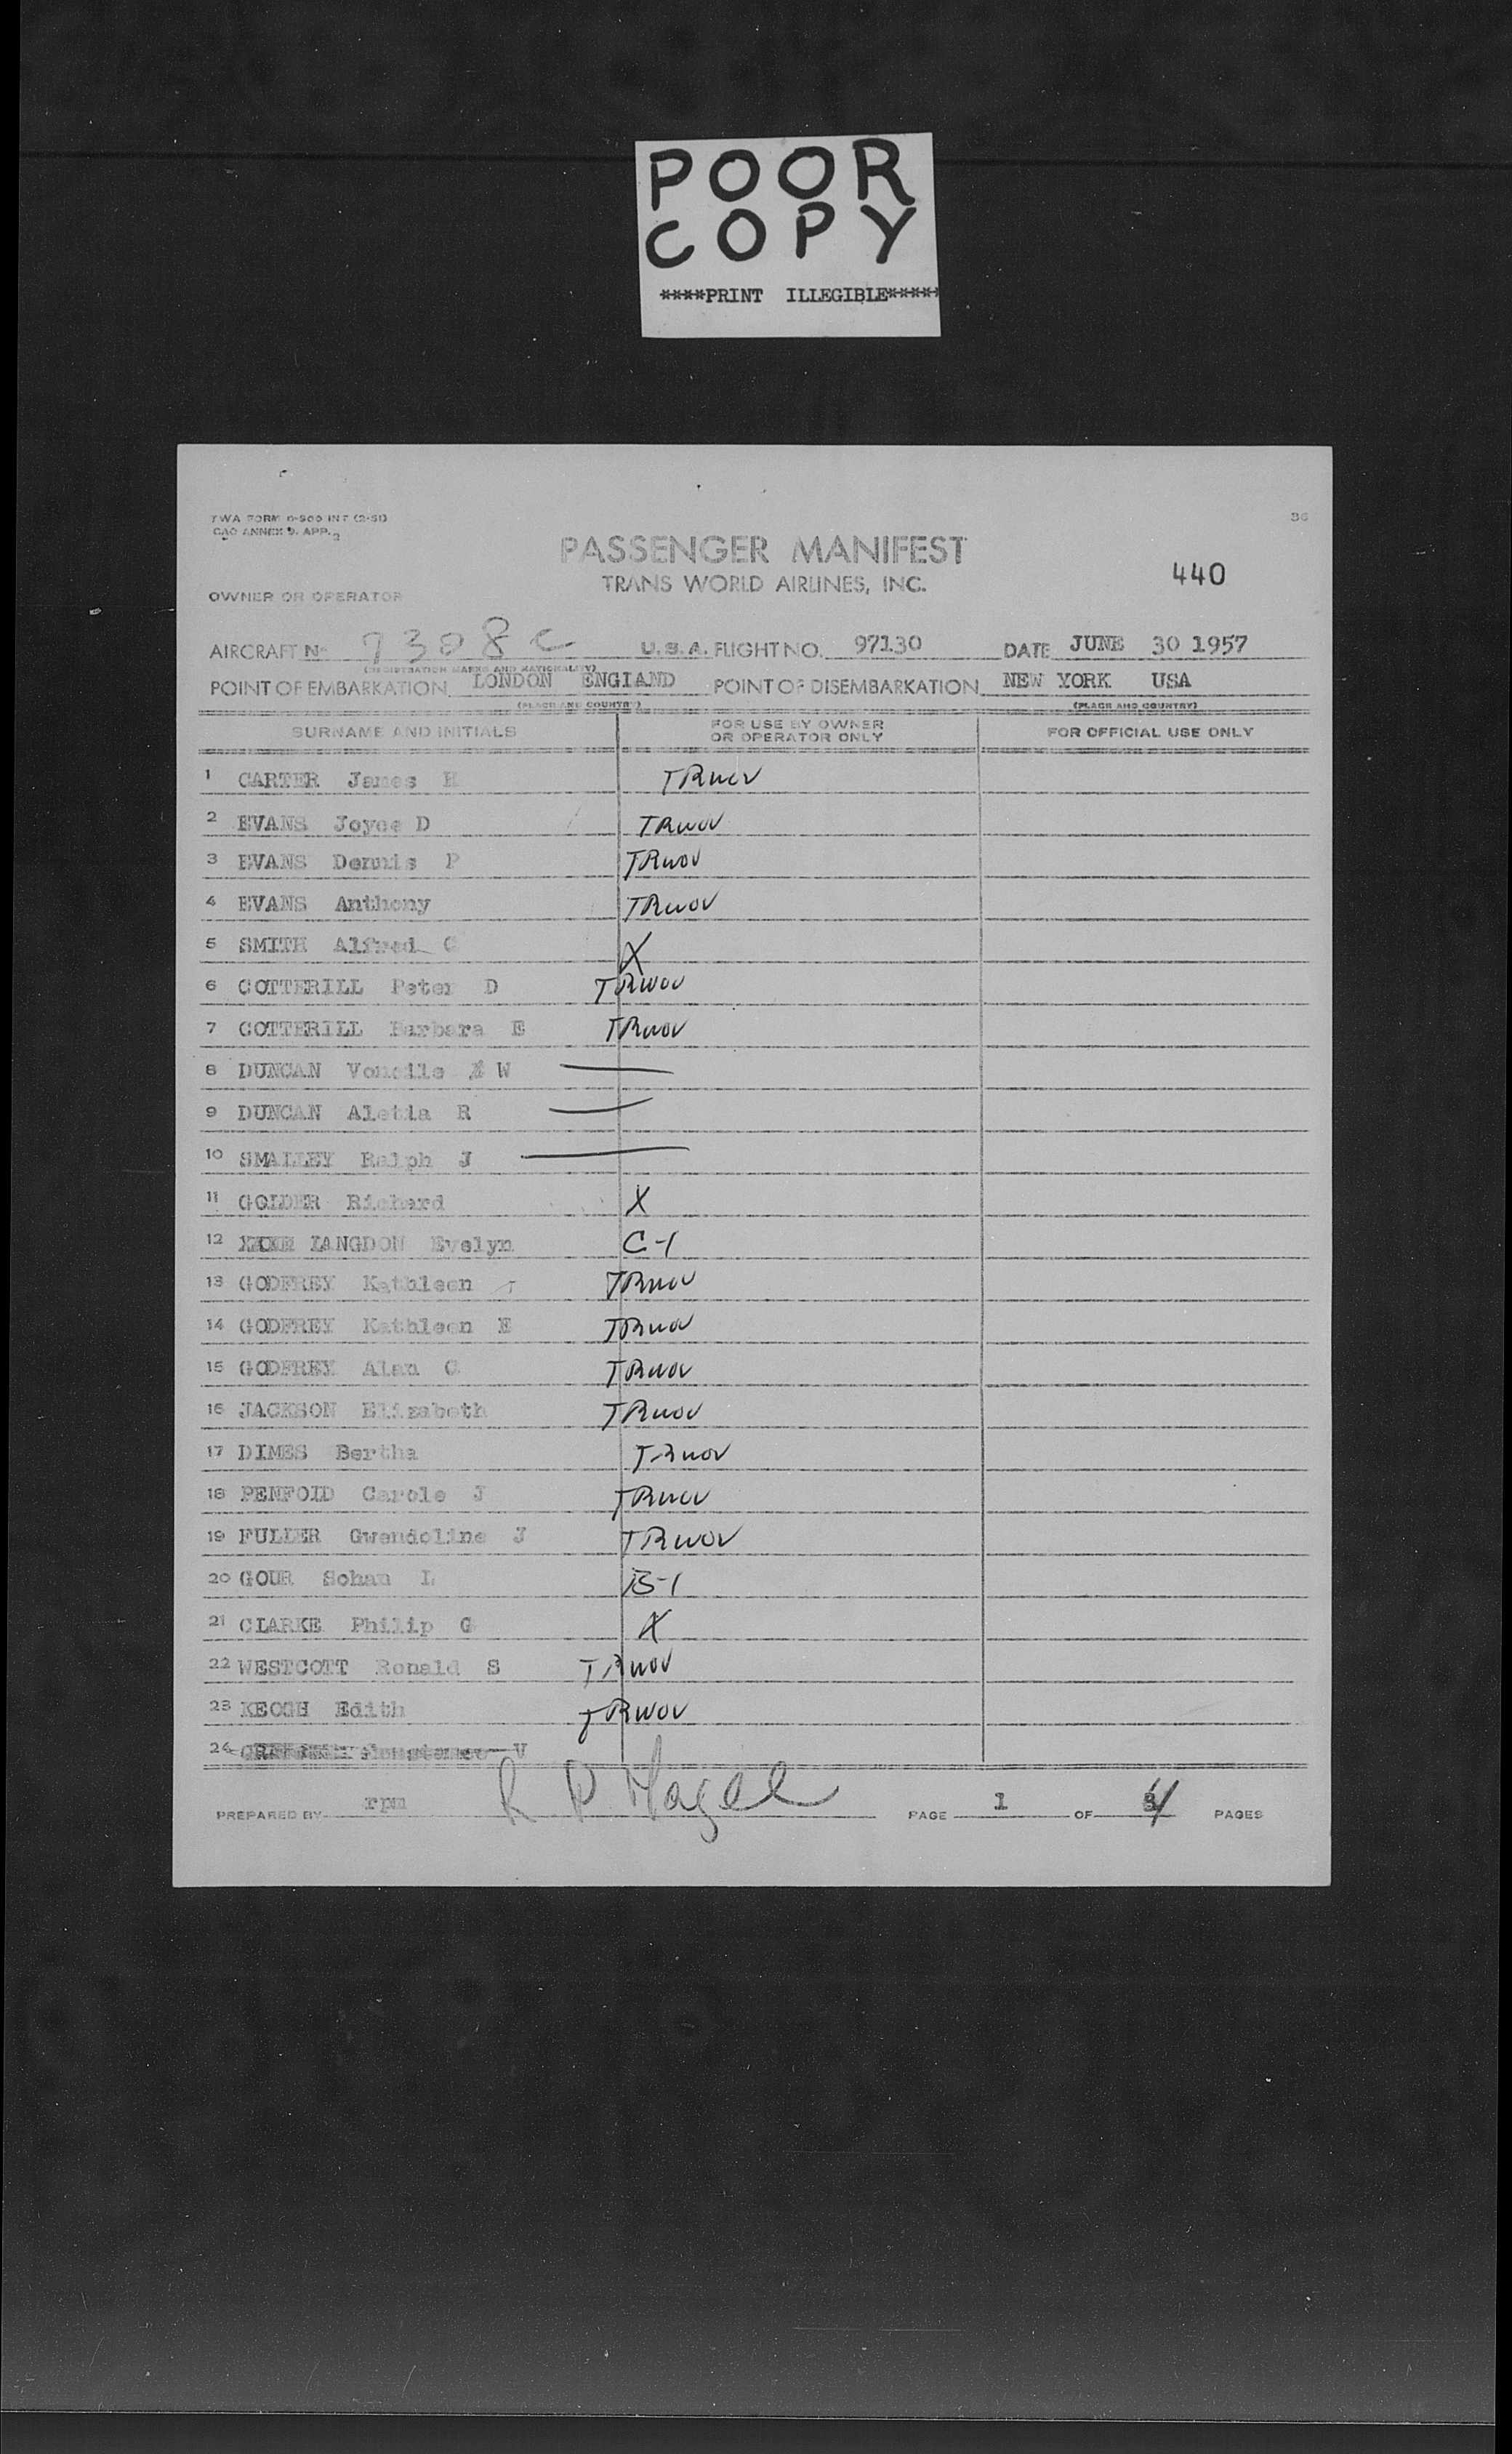 POOR
COPY
****PRINT ILLEGIBLE*****
TWA FORM 0-500 INT (2-51)
ICAO ANNEX 9. APP. 2
36
PASSENGER MANIFEST
440
TRANS WORLD AIRLINES, INC.
OWNER OR OPERATOR
AIRCRAFT No 7308C U.S.A. FLIGHT NO. 97130 DATE JUNE 30 1957
(REGISTRATION MARKS AND NATIONALITY)
POINT OF EMBARKATION LONDON ENGLAND POINT OF DISEMBARKATION NEW YORK USA
(PLACE AND COUNTRY) (PLACE AND COUNTRY)
SURNAME AND INITIALS FOR USE BY OWNER OR OPERATOR ONLY FOR OFFICIAL USE ONLY
1 CARTER James H TRWOV
2 EVANS Joyce D TRWOV
3 EVANS Dennis P TRWOV
4 EVANS Anthony TRWOV
5 SMITH Alfred G X
6 COTTERILL Peter D TRWOV
7 COTTERILL Barbara E TRWOV
8 DUNCAN W
9 DUNCAN Aletia R
10 SMALLEY Ralph J
11 GOLDER Richard X
12 LANGDON Evelyn C-1
13 GODFREY Kathleen TRWOV
14 GODFREY Kathleen E TRWOV
15 GODFREY Alan G TRWOV
16 JACKSON Elizabeth TRWOV
17 DIMES Bertha TRWOV
18 PENFOLD Carole J TRWOV
19 FULLER Gwendoline J TRWOV
20 GOUR Sohan L B-1
21 CLARKE Philip G X
22 WESTCOTT Ronald S TRWOV
23 KEOGH Edith TRWOV
24 Constance V
PREPARED BY rpm R P Magee PAGE 1 OF 4 PAGES